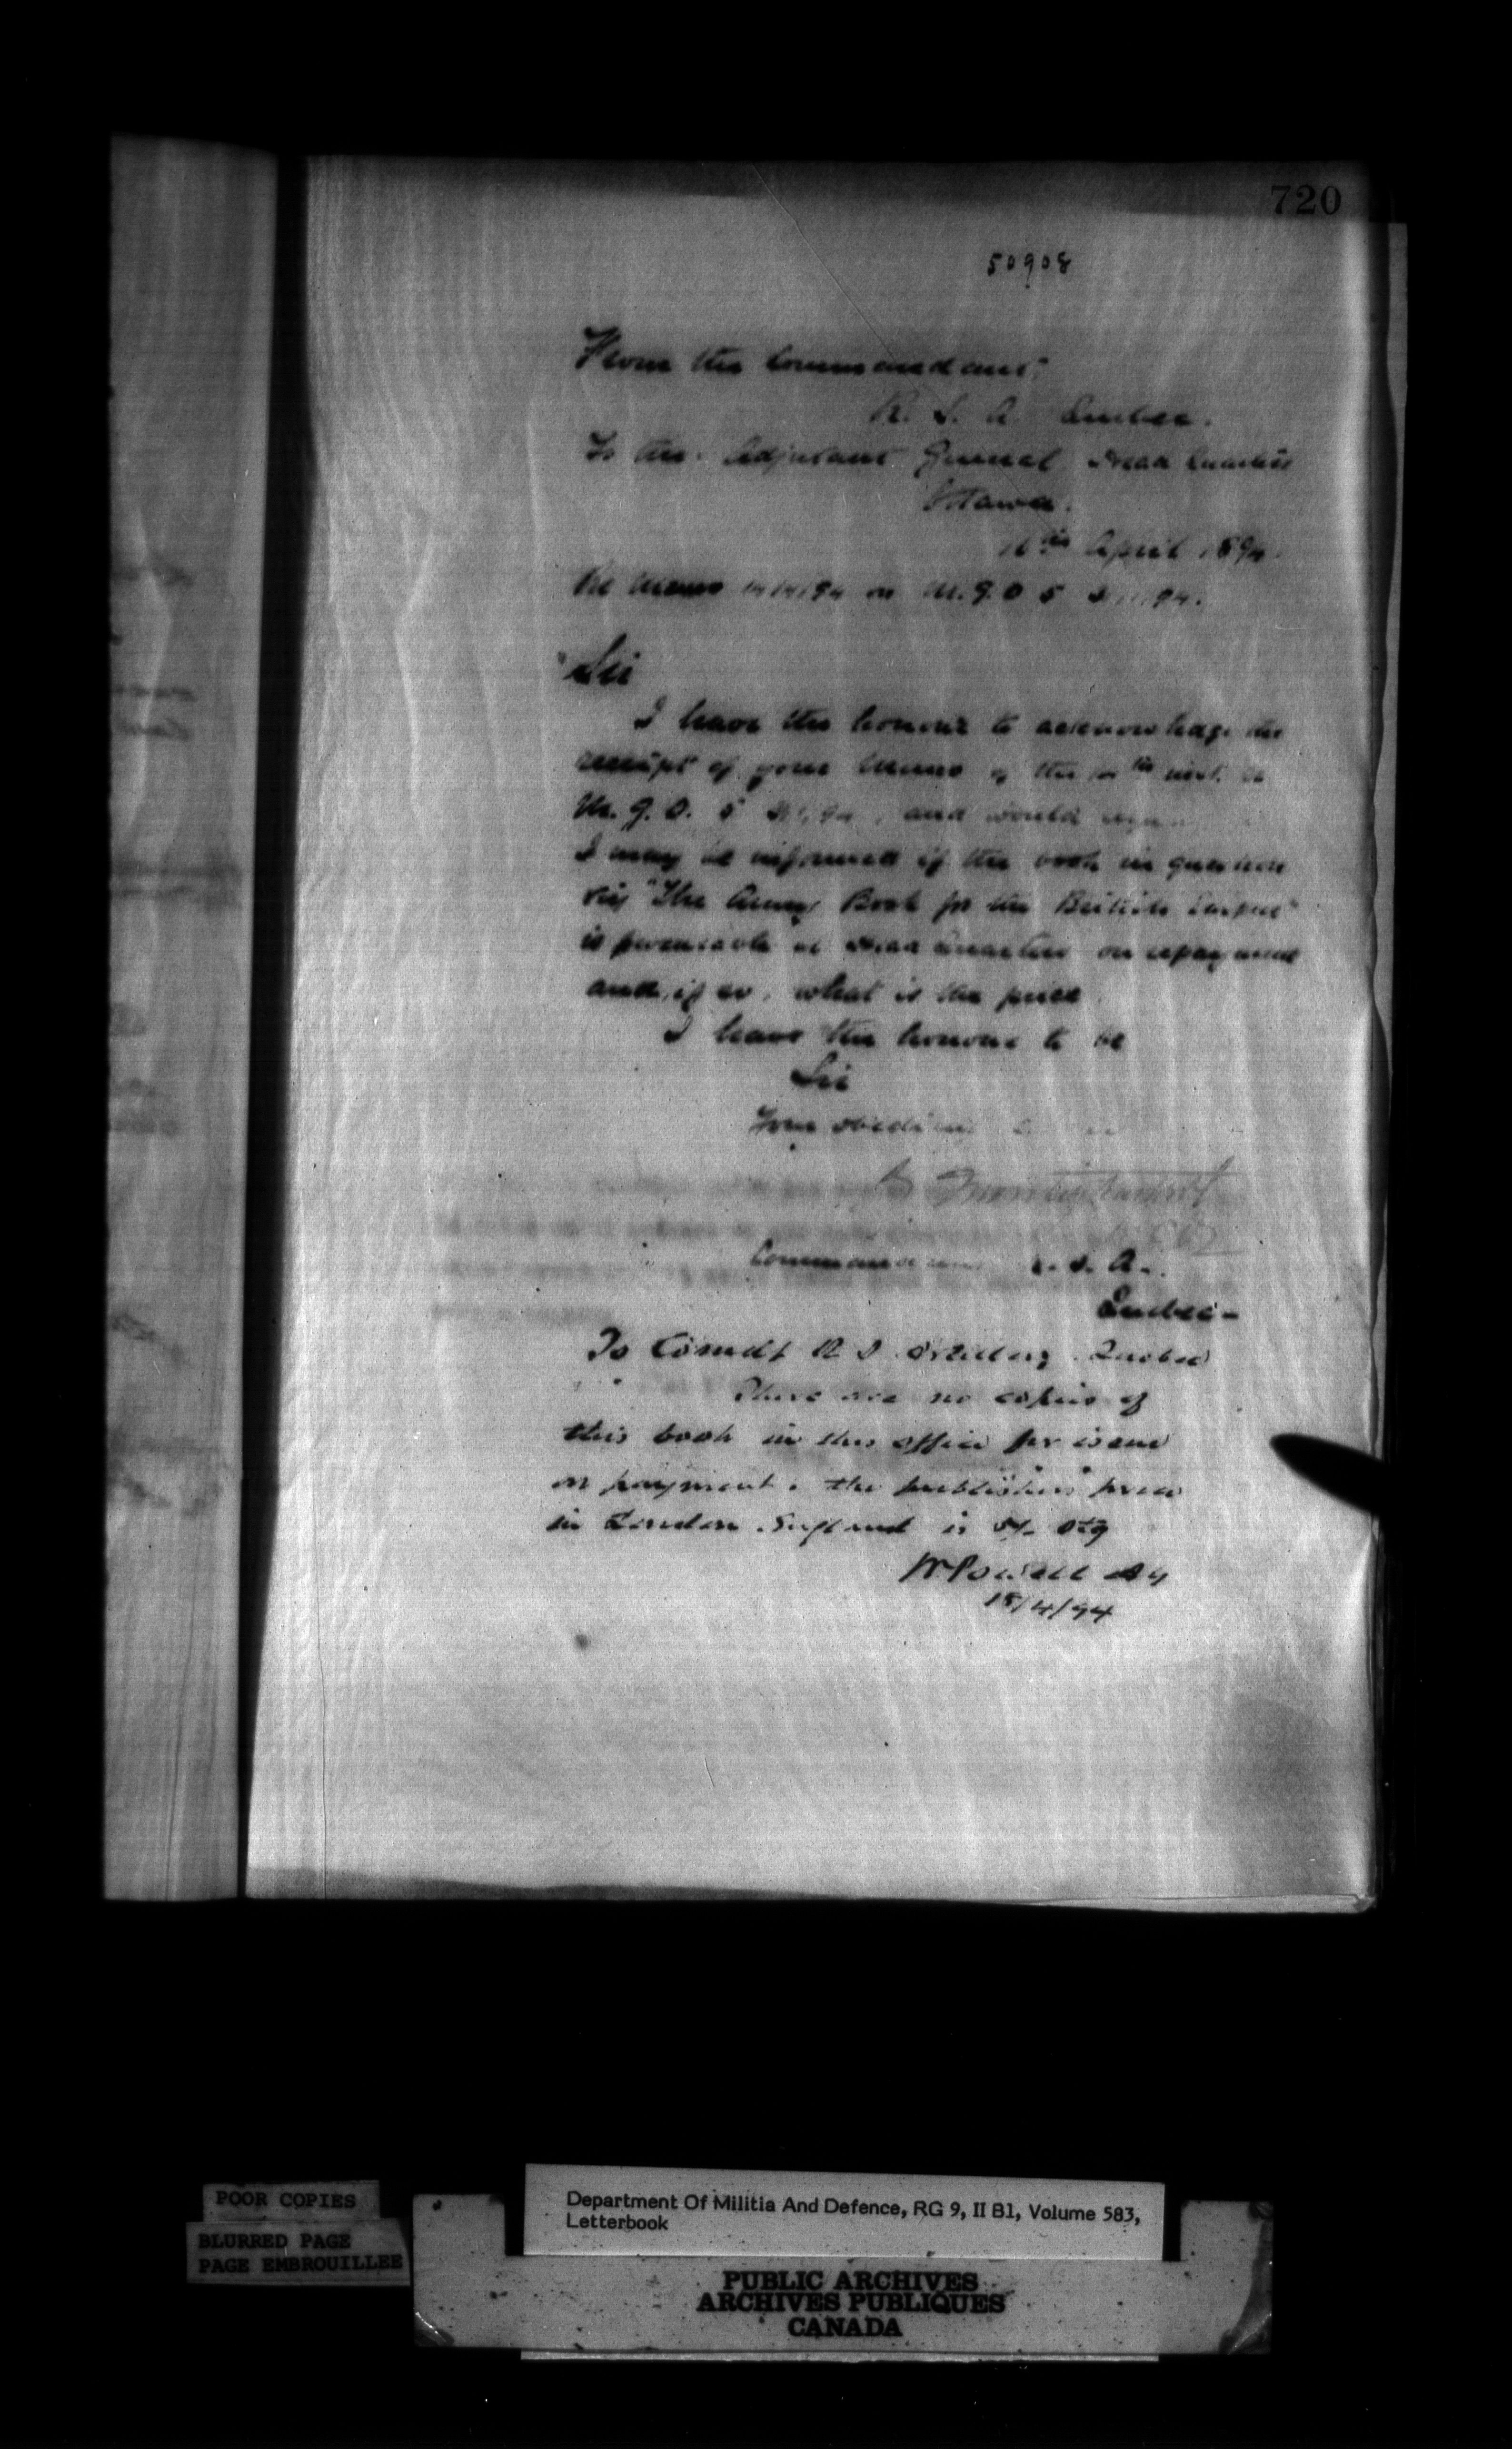 720
50908
From the Commandant
R. S. A. Quebec.
To the Adjutant General Head Quarters
Ottawa.
16th April 1894.
Re Memo 14/4/94 on M.G.O 5
Sir
I have the honour to acknowledge the
receipt of your Memo of the 14th inst. on
M. G. O. 5 and would
I may be informed if the book in question
viz "The Army Book for the British Empire"
is procurable at Head Quarters on repayment
and, if so, what is the price
I have the honour to be
Sir
Your obedient
Commandant R. S. A.
Quebec-
To Comdt R S Artillery Quebec
There are no copies of
this book in this office for issue
on payment. the publishers price
in London England is 5/- Stg
W Powell AG
18/4/94
POOR COPIES
BLURRED PAGE
PAGE EMBROUILLEE
Department Of Militia And Defence, RG 9, II B1, Volume 583,
Letterbook
PUBLIC ARCHIVES
ARCHIVES PUBLIQUES
CANADA